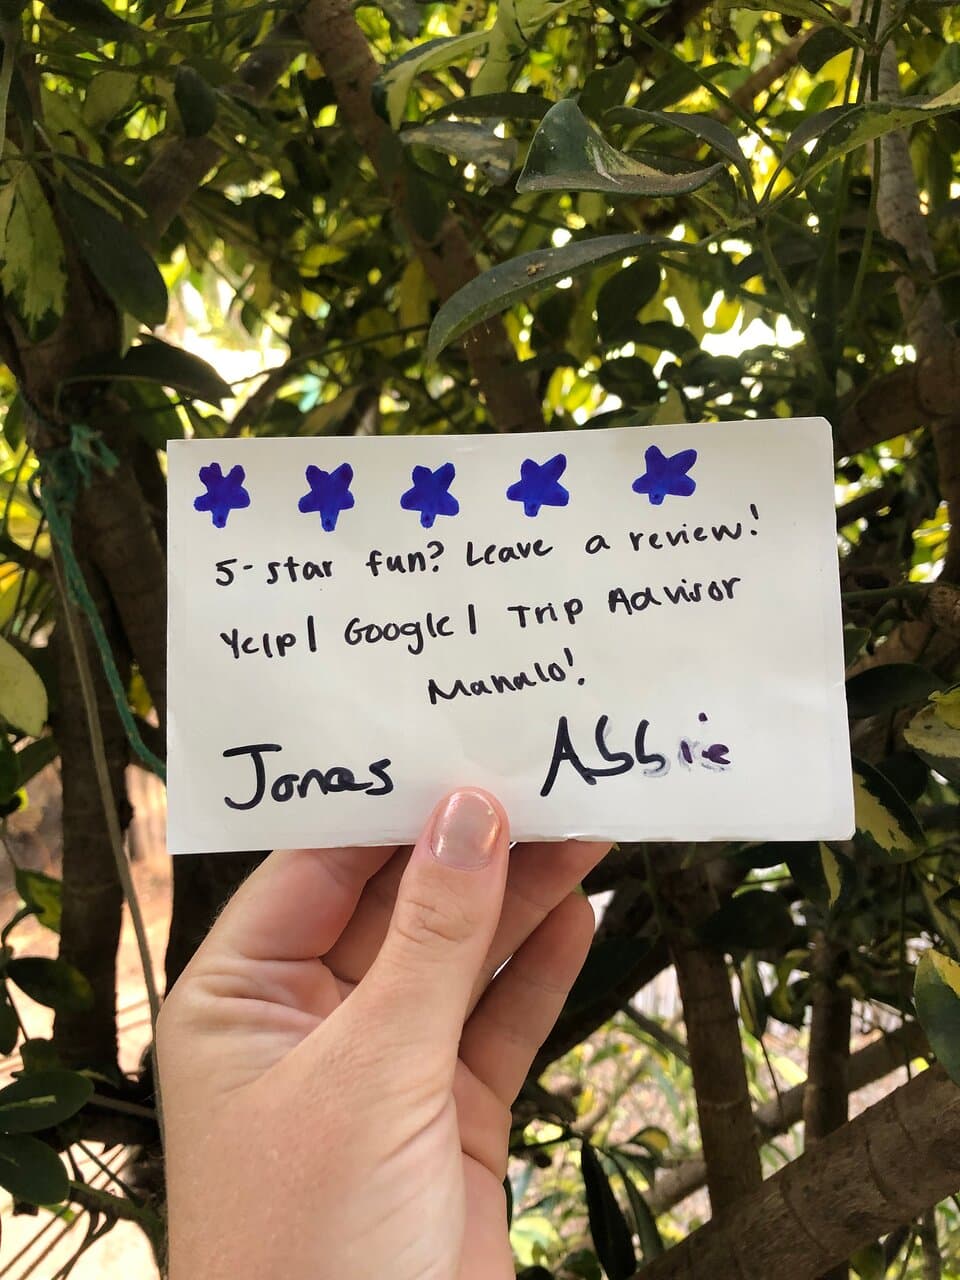 5-star fun? Leave a review!
Yelp| Google| Trip Advisor
Manalo!
Jonas Abbie